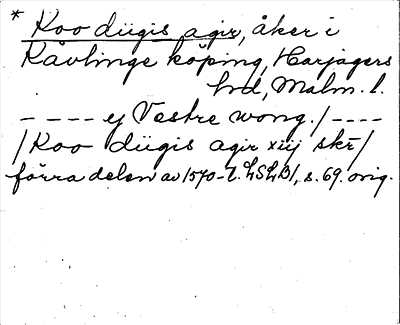 * Koo diigis agir, åker i
Kävlinge köping, Harjagers
hd, Malm. l.
- - - - ej Vestre wong. / - - - -
/ Koo diigis agir xiij skr̄ /
förra delen av 1570-t. LSLB1, s. 69. orig.